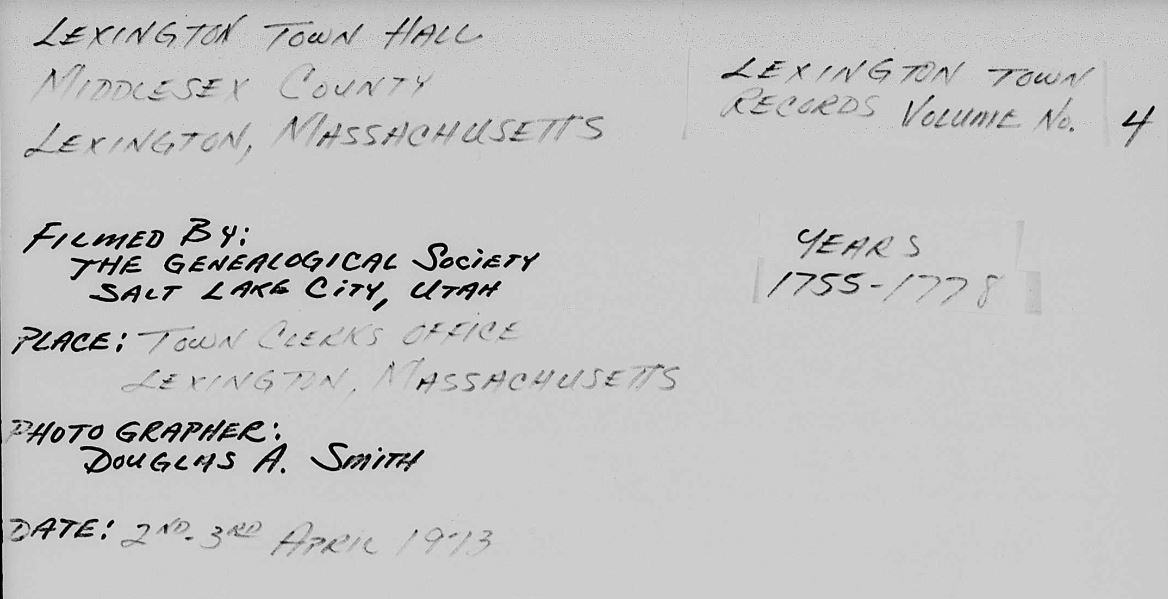 LEXINGTON TOWN HALL
MIDDLESEX COUNTY
LEXINGTON, MASSACHUSETTS
LEXINGTON TOWN
RECORDS VOLUME No. 4
FILMED BY:
THE GENEALOGICAL SOCIETY
SALT LAKE CITY, UTAH
YEARS
1755-1778
PLACE: TOWN CLERKS OFFICE
LEXINGTON, MASSACHUSETTS
PHOTOGRAPHER:
DOUGLAS A. SMITH
DATE: 2ND-3RD APRIL 1973